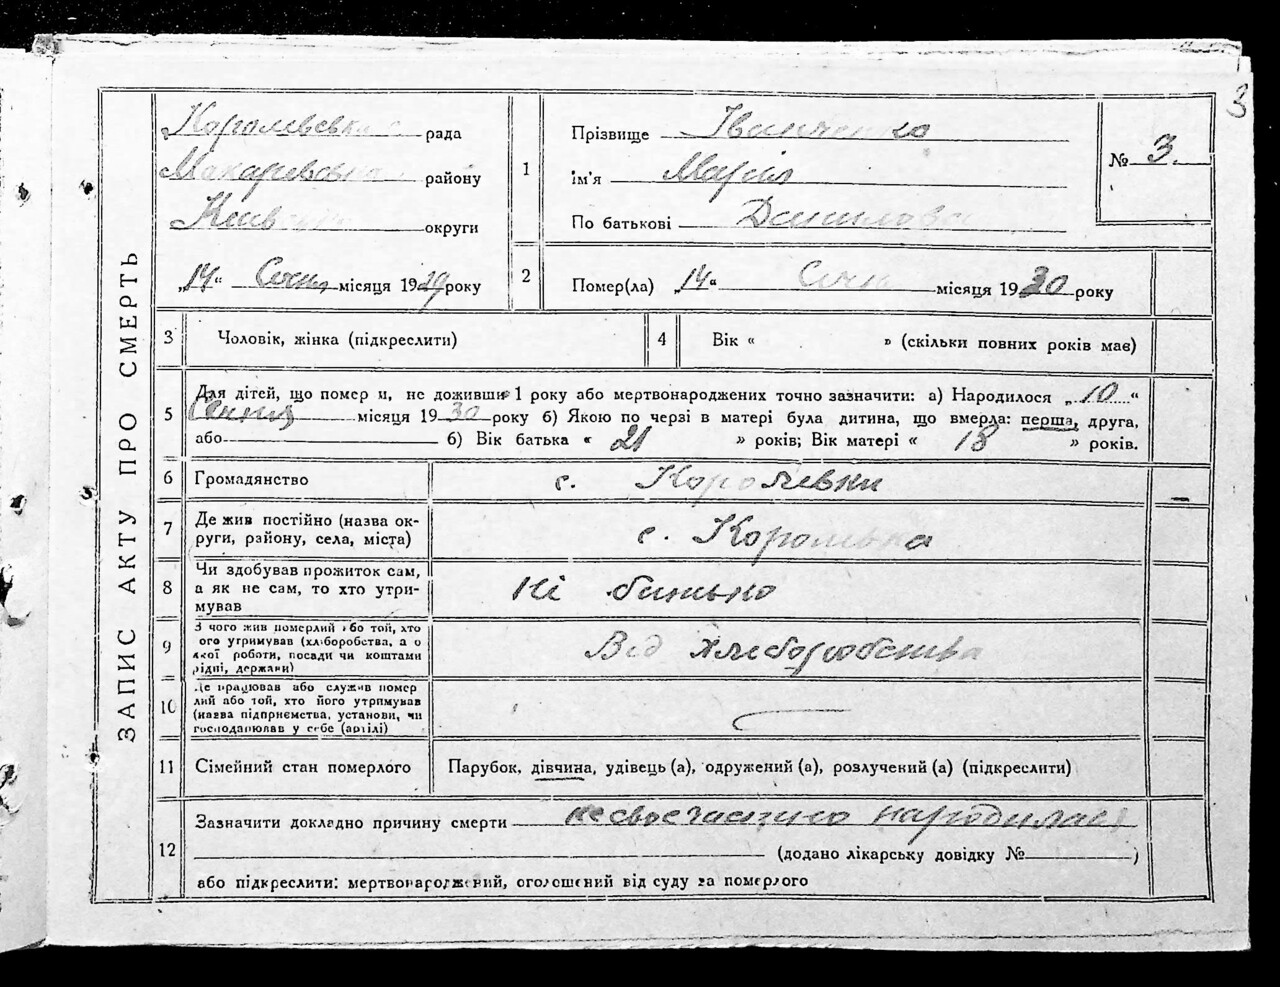 3
ЗАПИС АКТУ ПРО СМЕРТЬ
Королевська рада
Макаревська району
Київ округи
„14“ Січня місяця 1929 року
1
Прізвище Іванченко
ім'я Марія
По батькові Данилова
№ 3.
2
Помер(ла) „14“ Січн місяця 1930 року
3
Чоловік, жінка (підкреслити)
4
Вік « » (скільки повних років має)
5
Для дітей, що помер и, не доживши 1 року або мертвонароджених точно зазначити: а) Народилося „10“
місяця 1930 року б) Якою по черзі в матері була дитина, що вмерла: перша, друга,
або б) Вік батька « 21 » років; Вік матері « 18 » років.
6
Громадянство
с. Королевки
7
Де жив постійно (назва ок-
руги, району, села, міста)
с. Королівка
8
Чи здобував прожиток сам,
а як не сам, то хто утри-
мував
Ні батько
9
З чого жив померлий або той, хто
ого утримував (хліборобства, а о
якої роботи, посади чи коштами
рідні, держави)
Від хлеборобства
10
Де працював або служив помер
лий або той, хто його утримував
(назва підприємства, установи, чи
господарював у себе (артілі)
11
Сімейний стан померлого
Парубок, дівчина, удівець (а), одружений (а), розлучений (а) (підкреслити)
12
Зазначити докладно причину смерти несвоєчасно народилася
(додано лікарську довідку № )
або підкреслити: мертвонароджений, оголошений від суду за померлого